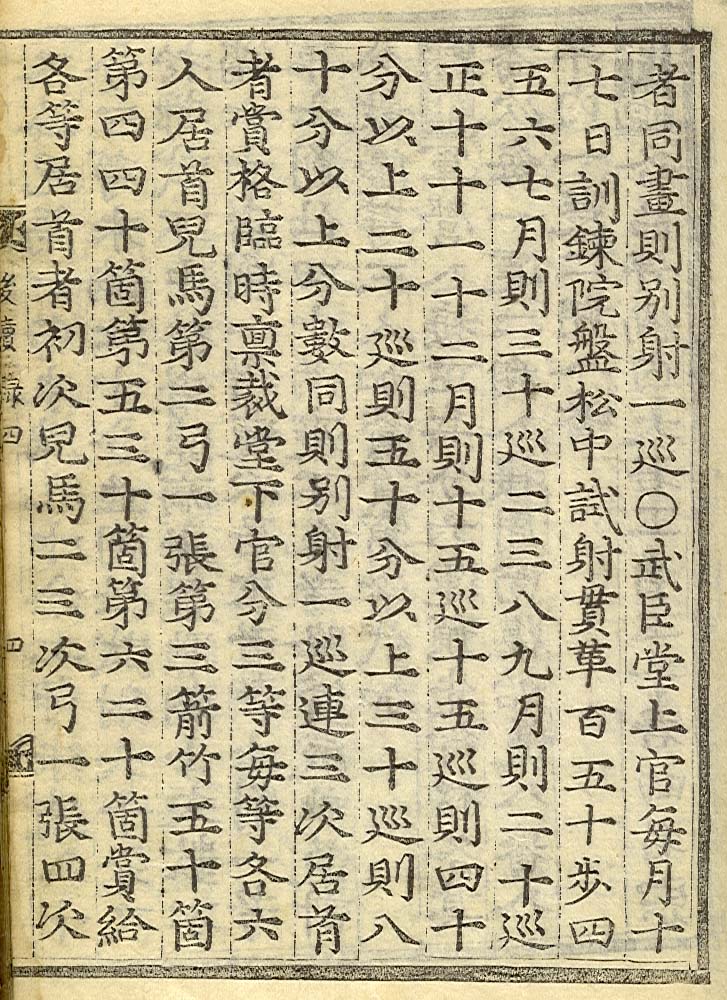 者同畫則別射一巡○武臣堂上官每月十
七日訓鍊院盤松中試射貫革百五十步四
五六七月則三十巡二三八九月則二十巡
正十十一十二月則十五巡十五巡則四十
分以上二十巡則五十分以上三十巡則八
十分以上分數同則別射一巡連三次居首
者賞格臨時禀裁堂下官分三等每等各六
人居首兒馬第二弓一張第三箭竹五十箇
第四四十箇第五三十箇第六二十箇賞給
各等居首者初次兒馬二三次弓一張四次
後續錄四
四